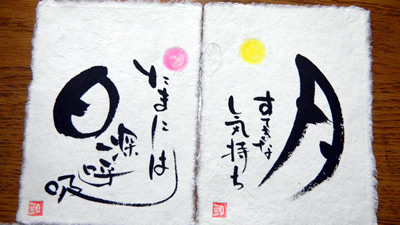 たまには
深呼吸
日
月
すてきな
気持ち